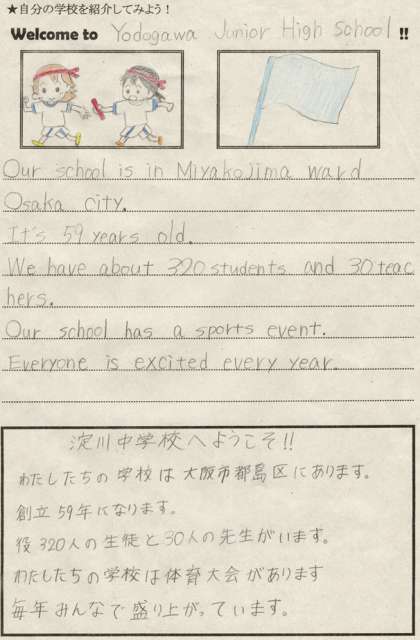 ★自分の学校を紹介してみよう!
Welcome to Yodogawa Junior High School !!
Our school is in Miyakojima ward
Osaka city.
It's 59 years old.
We have about 320 students and 30 teac
hers.
Our school has a sports event.
Everyone is excited every year.
淀川中学校へようこそ!!
わたしたちの学校は大阪市都島区にあります。
創立59年になります。
役320人の生徒と30人の先生がいます。
わたしたちの学校は体育大会があります
毎年みんなで盛り上がっています。